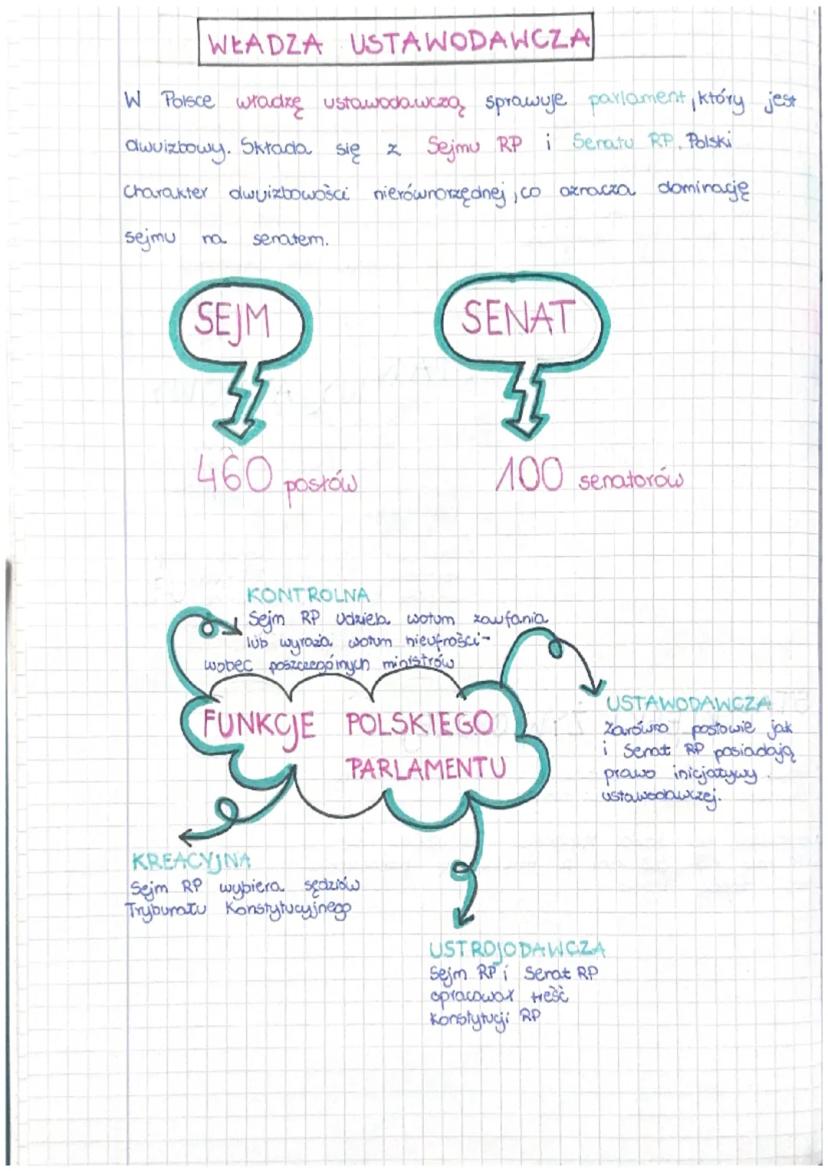 WŁADZA USTAWODAWCZA
W Polsce władzę ustawodawczą sprawuje parlament, który jest
dwuizbowy. Składa się z Sejmu RP i Senatu RP. Polski
charakter dwuizbowości nierównorzędnej, co oznacza dominację
sejmu na senatem.
SEJM
SENAT
460 posłów
100 senatorów
KONTROLNA
Sejm RP udziela wotum zaufania
lub wyraża wotum nieufności-
wobec poszczególnych ministrów
FUNKCJE POLSKIEGO
PARLAMENTU
USTAWODAWCZA
Zarówno posłowie jak
i Senat RP posiadają
prawo inicjatywy
ustawodawczej.
KREACYJNA
Sejm RP wybiera sędziów
Trybunału Konstytucyjnego
USTROJODAWCZA
Sejm RP i Senat RP
opracował treść
Konstytucji RP